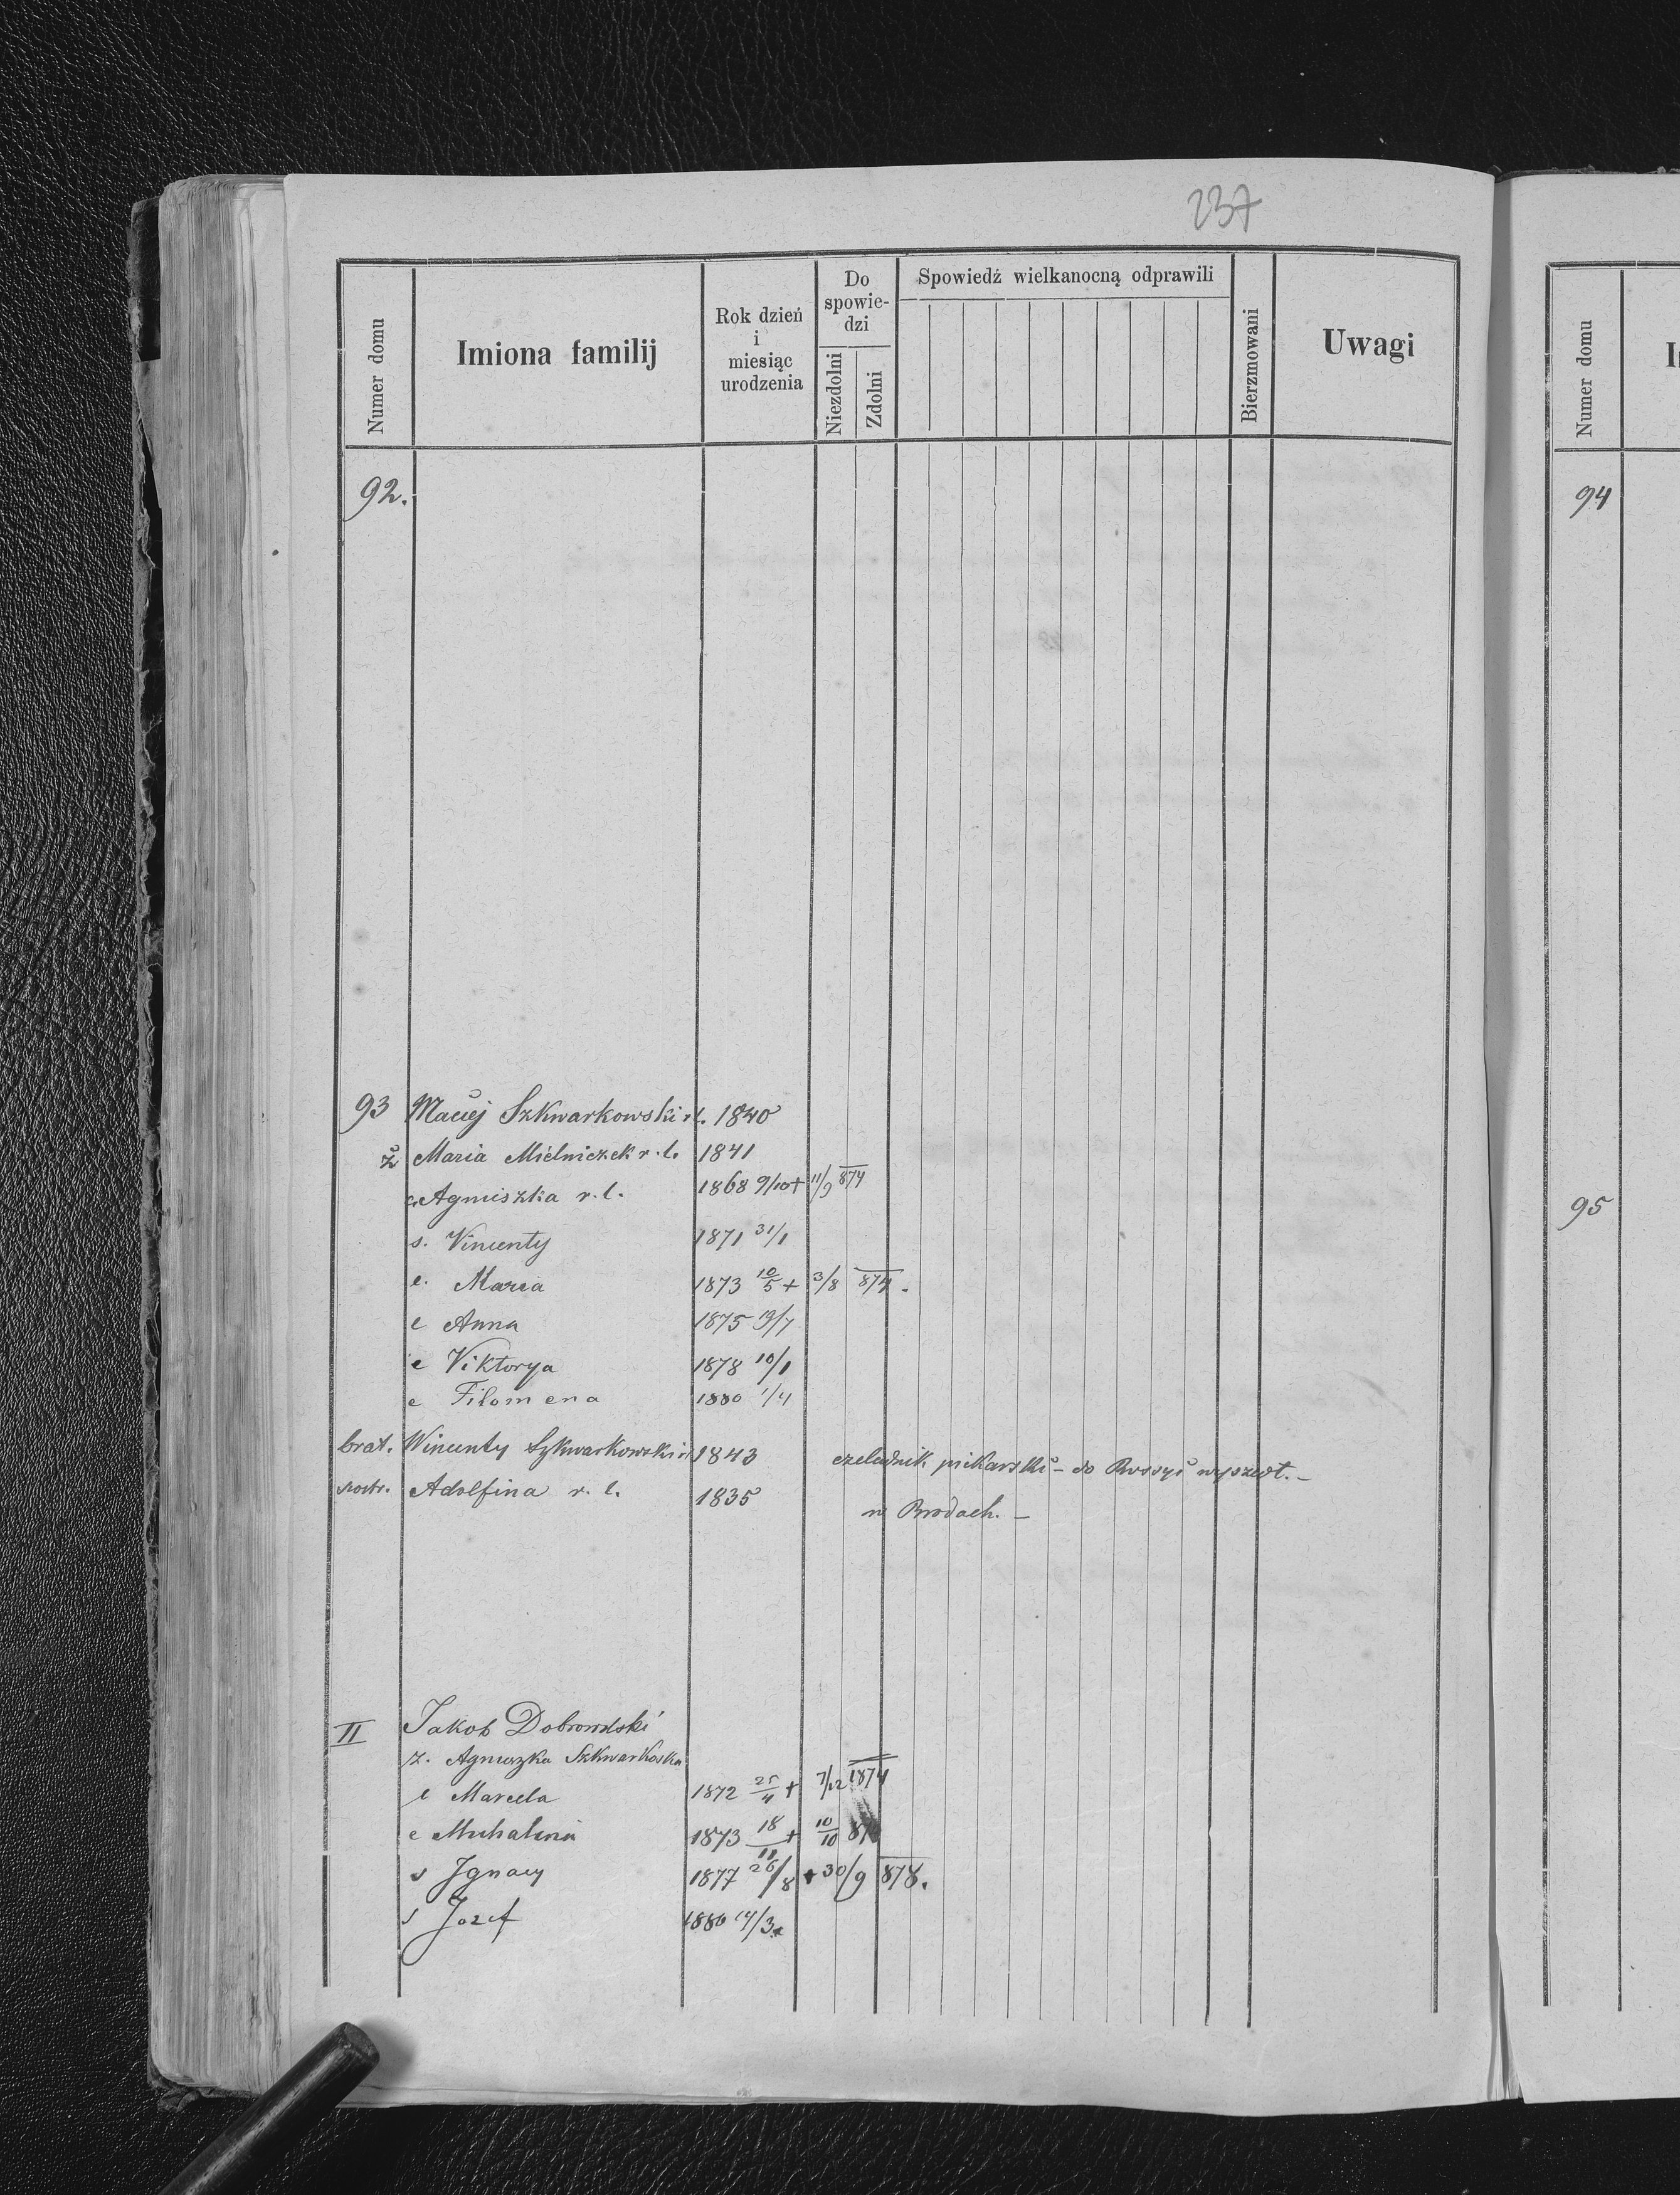 237
Numer domu
Imiona familij
Rok dzień i miesiąc urodzenia
Do spowiedzi
Niezdolni
Zdolni
Spowiedź wielkanocną odprawili
Bierzmowani
Uwagi
Numer domu
92.
94
93 Maciej Szkwarkowski r.l. 1840
ż Maria Mielniczek r.l. 1841
c. Agniszka r.l. 1868 9/10 + 11/9 874
s. Vincenty 1871 31/1
c. Maria 1873 10/5 + 3/8 874.
c Anna 1875 19/7
c Viktorya 1878 10/1
c Filomena 1880 1/4
95
brat. Wincenty Szkwarkowski 1843 czeladnik piekarski - do Rossyi wyszedł. -
siostr. Adolfina r.l. 1835 w Brodach. -
II Jakob Dobrowolski
ż. Agnieszka Szkwarkoska
c Marcela 1872 25/4 + 7/12 1874
c Michalina 1873 18/11 + 10/10
s Ignacy 1877 26/8 + 30/9 878.
s Jozef 1880 14/3